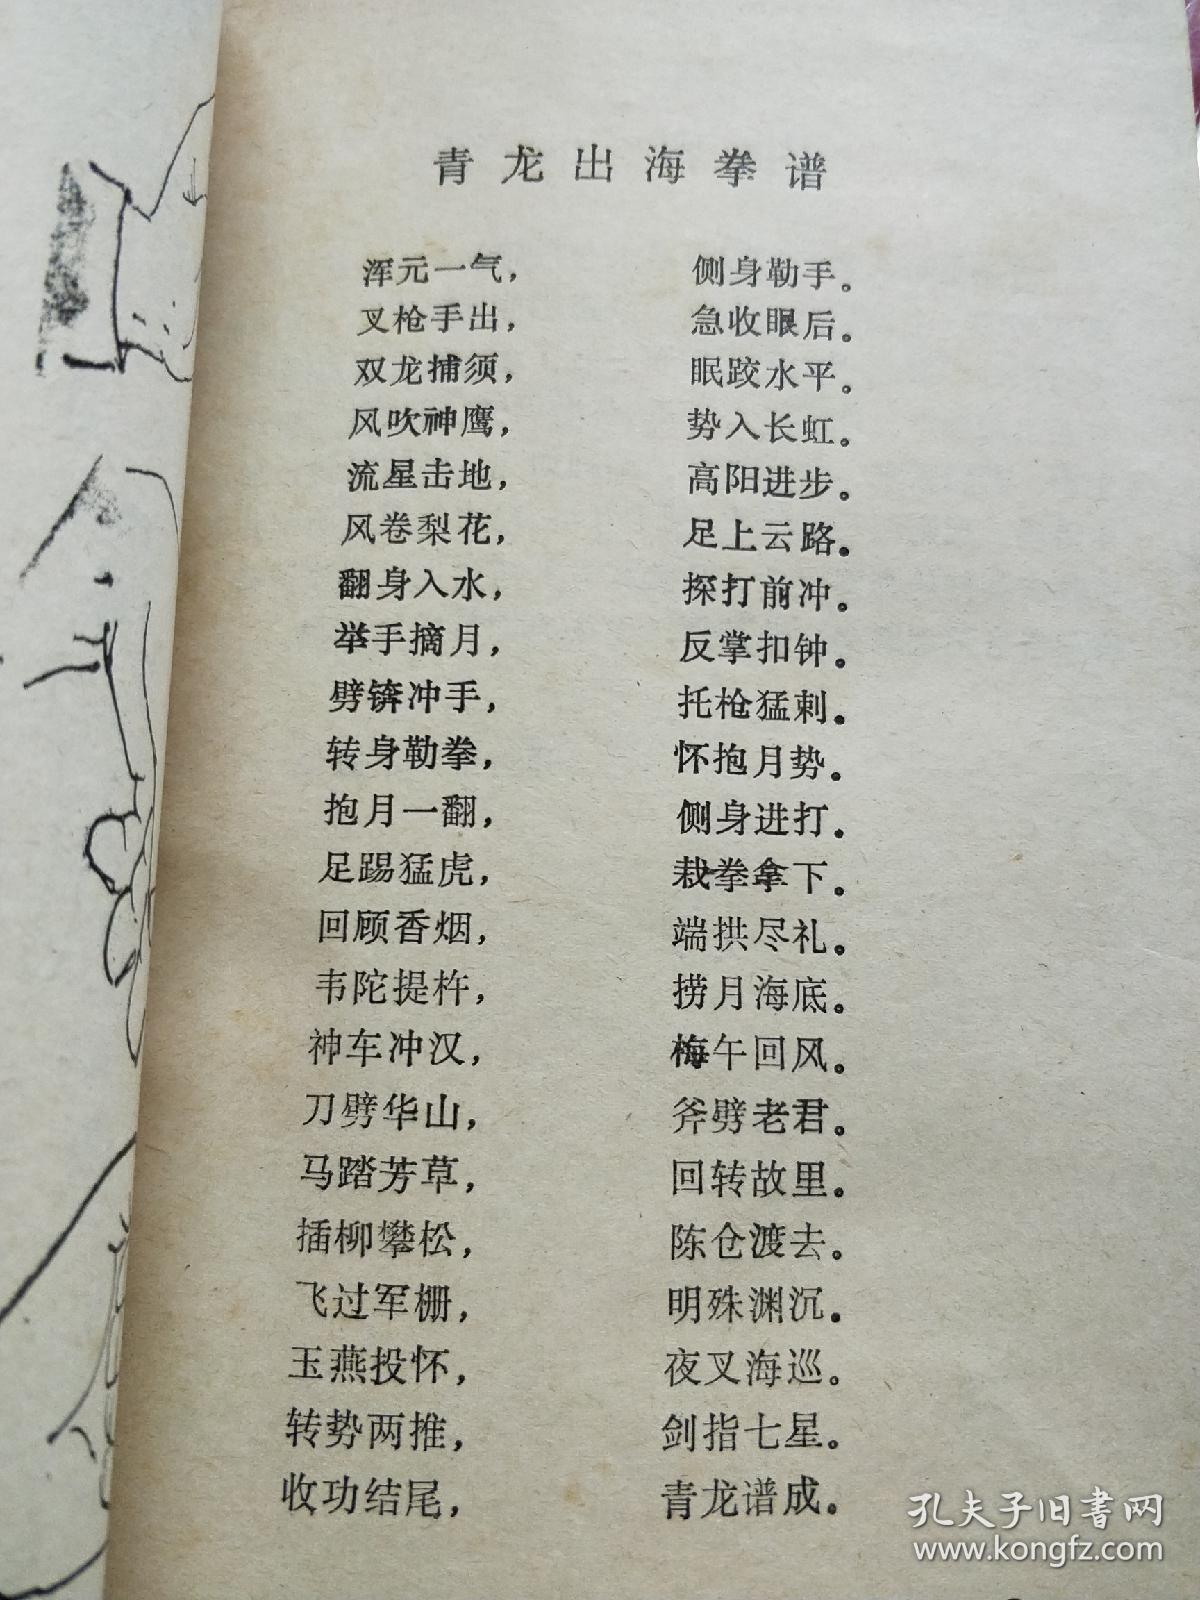 青龙出海拳谱
浑元一气， 侧身勒手。
叉枪手出， 急收眼后。
双龙捕须， 眠跤水平。
风吹神鹰， 势入长虹。
流星击地， 高阳进步。
风卷梨花， 足上云路。
翻身入水， 探打前冲。
举手摘月， 反掌扣钟。
劈锛冲手， 托枪猛刺。
转身勒拳， 怀抱月势。
抱月一翻， 侧身进打。
足踢猛虎， 栽拳拿下。
回顾香烟， 端拱尽礼。
韦陀提杵， 捞月海底。
神车冲汉， 梅午回风。
刀劈华山， 斧劈老君。
马踏芳草， 回转故里。
插柳攀松， 陈仓渡去。
飞过军栅， 明殊渊沉。
玉燕投怀， 夜叉海巡。
转势两推， 剑指七星。
收功结尾， 青龙谱成。
孔夫子旧书网
www.kongfz.com